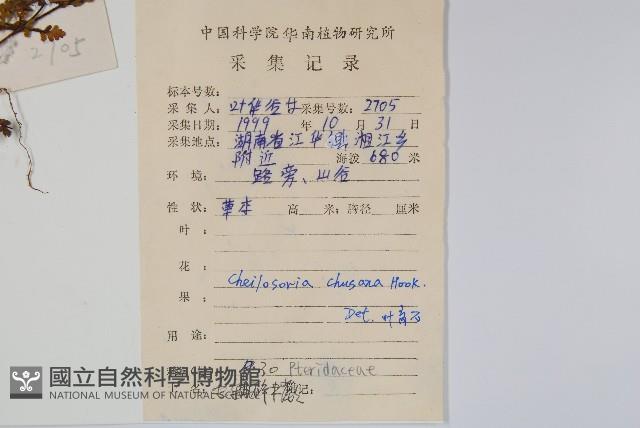 2705
中国科学院华南植物研究所
采 集 记 录
标本号数:
采 集 人: 叶华谷 采集号数: 2705
采集日期: 1999 年 10 月 31 日
采集地点: 湖南省江华 湘江乡
附近 海拔 680 米
环 境: 路旁、山谷
性 状: 草本 高 米; 胸径 厘米
叶 :
花 :
Cheilosoria chusana Hook.
果 :
Det. 叶
用 途:
30 Pteridaceae
記:
國立自然科學博物館
NATIONAL MUSEUM OF NATURAL SCIENCE